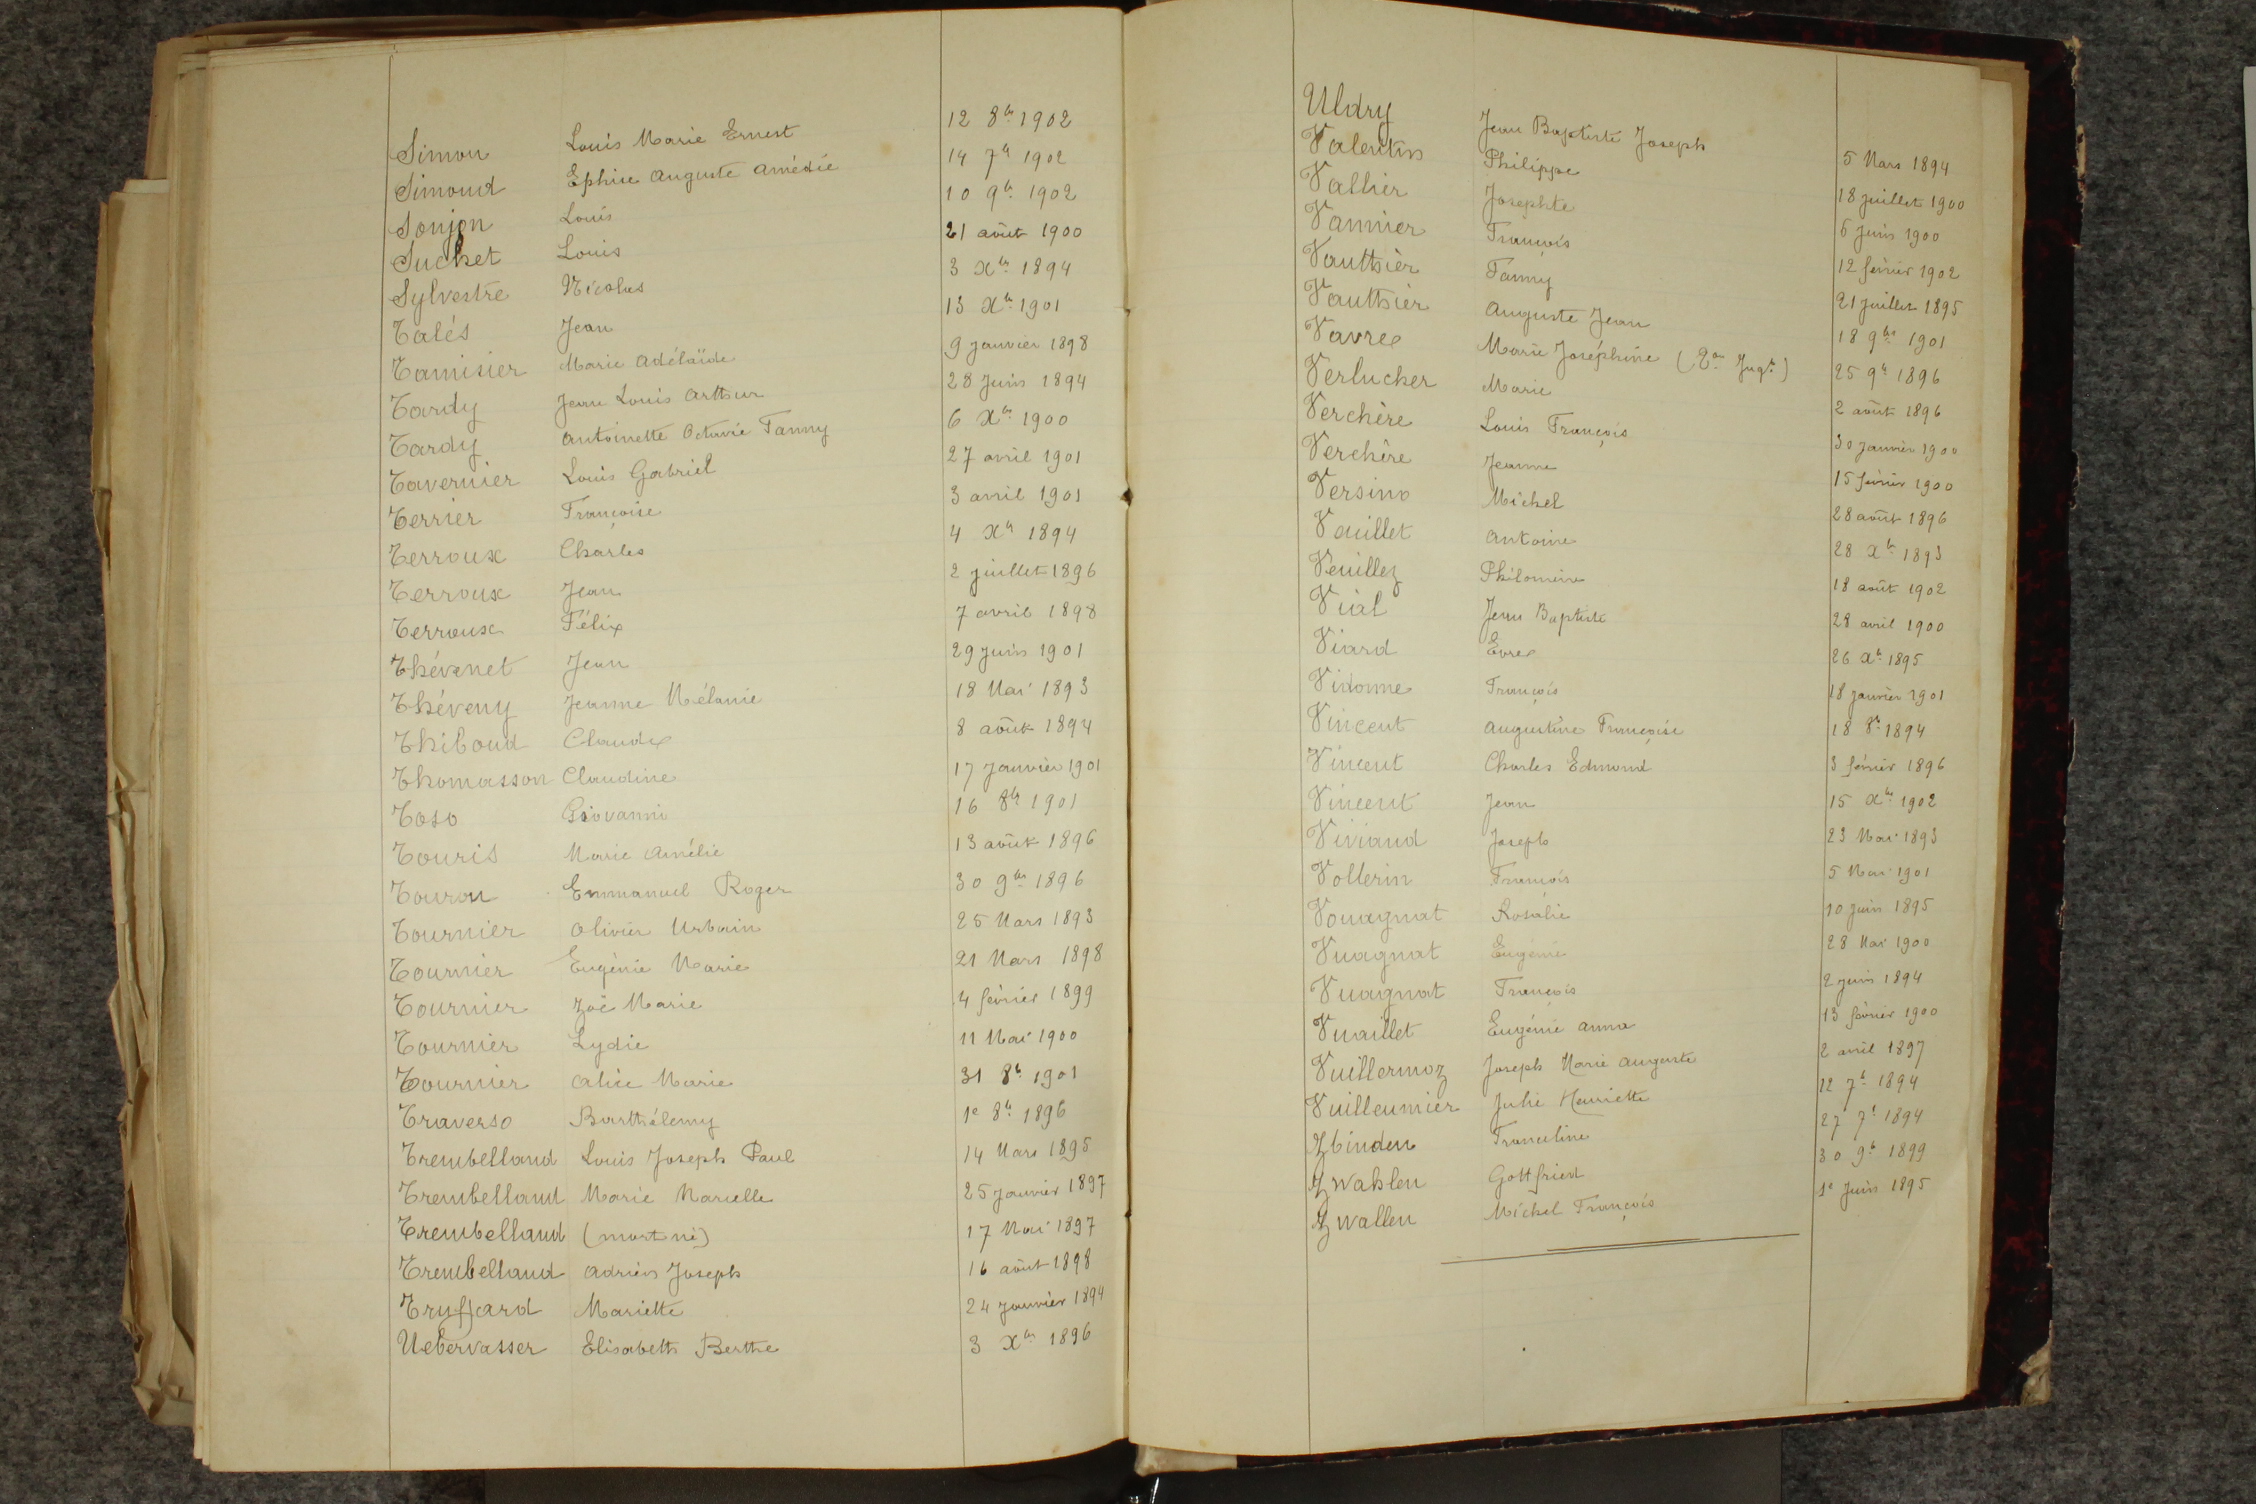 Simon Louis Marie Ernest 12 8bre 1902
Simond Ephise Auguste Amédée 14 7bre 1902
Soujon Louis 10 9bre 1902
Suchet Louis 21 août 1900
Sylvestre Nicolas 3 Xbre 1894
Talés Jean 13 Xbre 1901
Tamisier Marie Adélaïde 9 janvier 1898
Tardy Jean Louis Arthur 28 juin 1894
Tardy Antoinette Octavie Fanny 6 Xbre 1900
Tavernier Louis Gabriel 27 avril 1901
Terrier Françoise 3 avril 1901
Terroux Charles 4 Xbre 1894
Terroux Jean 2 juillet 1896
Terroux Félix 7 avril 1898
Thévenet Jean 29 juin 1901
Théveny Jeanne Mélanie 18 Mai 1893
Thiboud Claude 8 août 1894
Thomasson Claudine 17 janvier 1901
Toso Giovanni 16 8bre 1901
Touris Marie Amélie 13 août 1896
Touron Emmanuel Roger 30 9bre 1896
Tournier Olivier Urbain 25 Mars 1893
Tournier Eugénie Marie 21 Mars 1898
Tournier Zoé Marie 4 février 1899
Tournier Lydie 11 Mai 1900
Tournier Alice Marie 31 8bre 1901
Traverso Barthélemy 1e 8bre 1896
Trembelland Louis Joseph Paul 14 Mars 1895
Trembelland Marie Marcelle 25 janvier 1897
Trembelland (mort né) 17 Mai 1897
Trembelland Adrien Joseph 16 août 1898
Truffard Mariette 24 janvier 1894
Uebervasser Elisabeth Berthe 3 Xbre 1896
Uldry Jean Baptiste Joseph 5 Mars 1894
Valentin Philippe 18 juillet 1900
Vallier Josephte 6 juin 1900
Vannier François 12 février 1902
Vauthier Fanny 21 juillet 1895
Vauthier Auguste Jean 18 9bre 1901
Vavre Marie Joséphine (Don Jugt) 25 9bre 1896
Verlucher Marie 2 août 1896
Verchère Louis François 30 janvier 1900
Verchère Jeanne 15 février 1900
Versino Michel 28 août 1896
Veuillet Antoine 28 Xbre 1893
Veuillez Philomène 18 août 1902
Vial Jean Baptiste 28 avril 1900
Viard Evre 26 Xbre 1895
Vidonne François 18 janvier 1901
Vincent Augustine Françoise 18 8bre 1894
Vincent Charles Edmond 3 février 1896
Vincent Jean 15 Xbre 1902
Viviand Joseph 23 Mai 1893
Vollerin François 5 Mai 1901
Vouagnat Rosalie 10 juin 1895
Vuagnat Eugénie 28 Mai 1900
Vuagnat François 2 juin 1894
Vuaillet Eugénie Anna 13 février 1900
Vuillermoz Joseph Marie Auguste 2 avril 1897
Vuilleumier Julie Henriette 12 7bre 1894
Zbinden Franceline 27 7bre 1894
Zwahlen Gottfried 30 9bre 1899
Zwallen Michel François 1e juin 1895